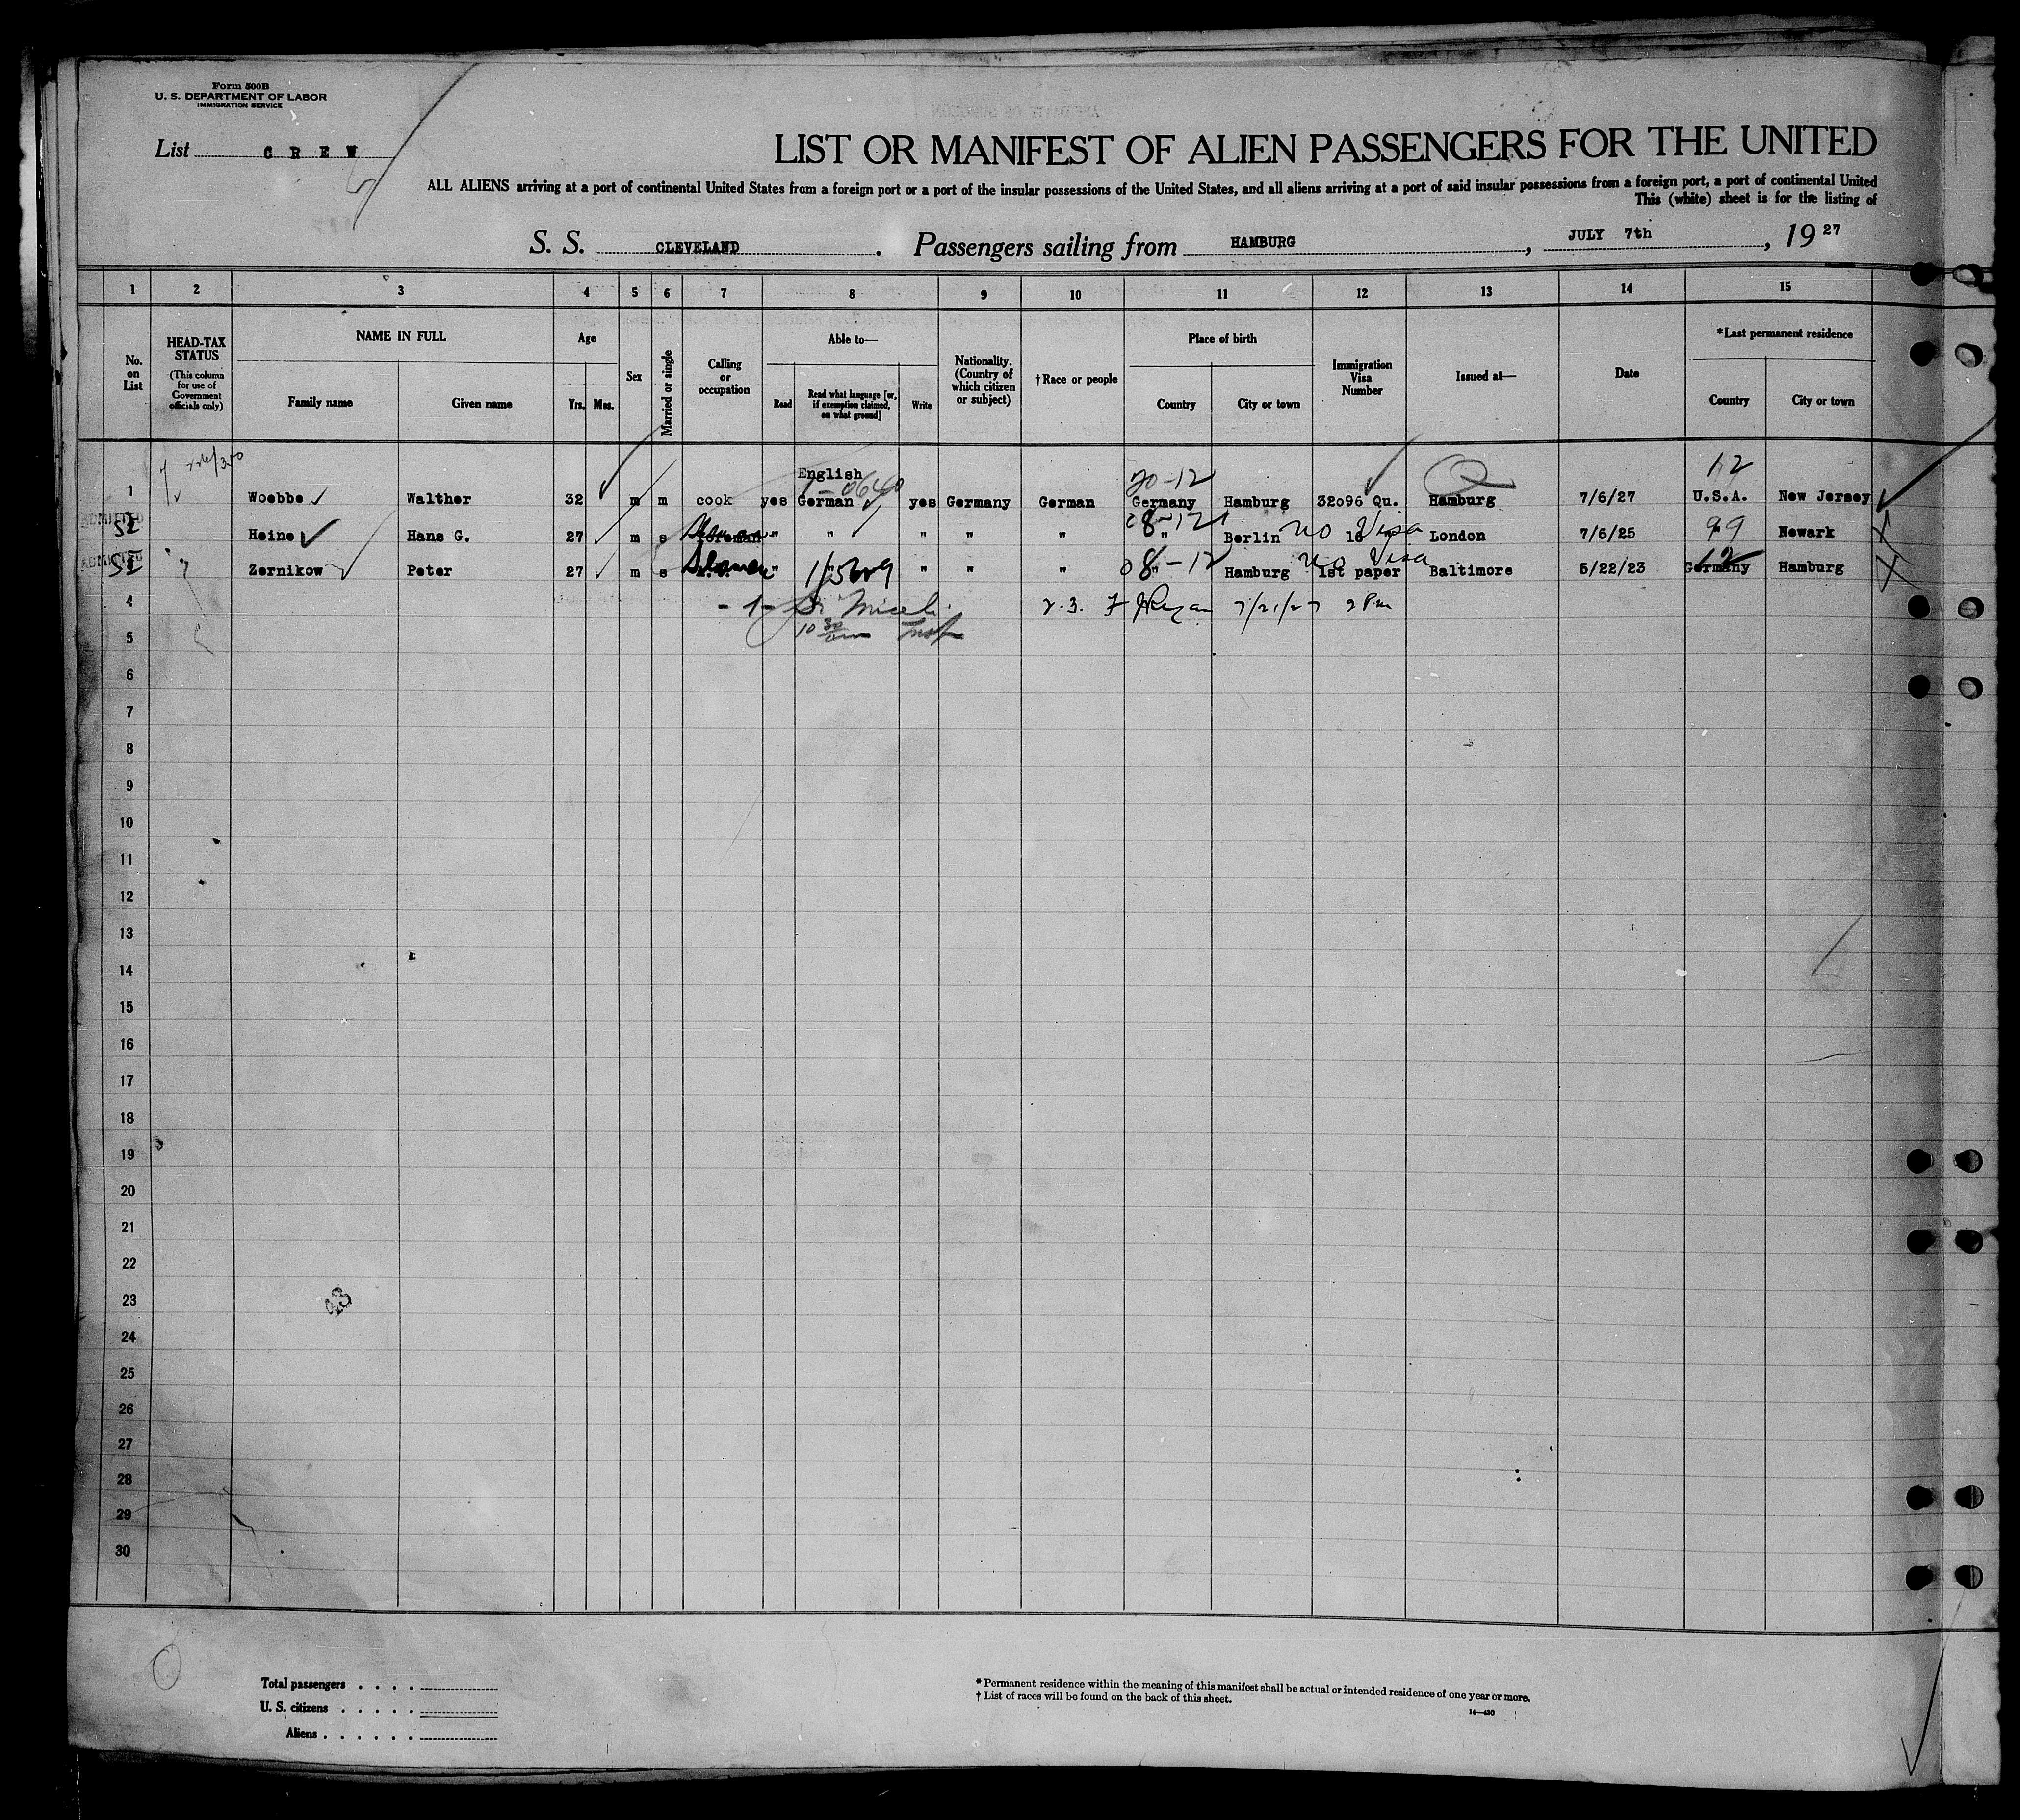 Form 500B
U. S. DEPARTMENT OF LABOR
IMMIGRATION SERVICE
List C R E W
LIST OR MANIFEST OF ALIEN PASSENGERS FOR THE UNITED
ALL ALIENS arriving at a port of continental United States from a foreign port or a port of the insular possessions of the United States, and all aliens arriving at a port of said insular possessions from a foreign port, a port of continental United
This (white) sheet is for the listing of
S. S. CLEVELAND. Passengers sailing from HAMBURG, JULY 7th, 1927
1 2 3 4 5 6 7 8 9 10 11 12 13 14 15
No. on List
HEAD-TAX STATUS (This column for use of Government officials only)
NAME IN FULL
Family name Given name
Age
Yrs. Mos.
Sex
Married or single
Calling or occupation
Able to—
Read Read what language [or, if exemption claimed, on what ground] Write
Nationality. (Country of which citizen or subject)
†Race or people
Place of birth
Country City or town
Immigration Visa Number
Issued at—
Date
*Last permanent residence
Country City or town
English 20-12 12
1 Woebbe Walther 32 m m cook yes German yes Germany German Germany Hamburg 32096 Qu. Hamburg 7/6/27 U.S.A. New Jersey
ADMITTED
52 Heine Hans G. 27 m s " " " " " " 08-12 Berlin no Visa London 7/6/25 99 " Newark
ADMITTED
52 Zernikow Peter 27 m s Seaman " " " " " 08-12 " Hamburg no Visa 1st paper Baltimore 5/22/23 Germany 12 Hamburg
4 -1- 7/21/27 2 Pm
5 10 30
6
7
8
9
10
11
12
13
14
15
16
17
18
19
20
21
22
23 43
24
25
26
27
28
29
30
Total passengers . . . .
U. S. citizens . . . . .
Aliens . . . . . .
* Permanent residence within the meaning of this manifest shall be actual or intended residence of one year or more.
† List of races will be found on the back of this sheet.